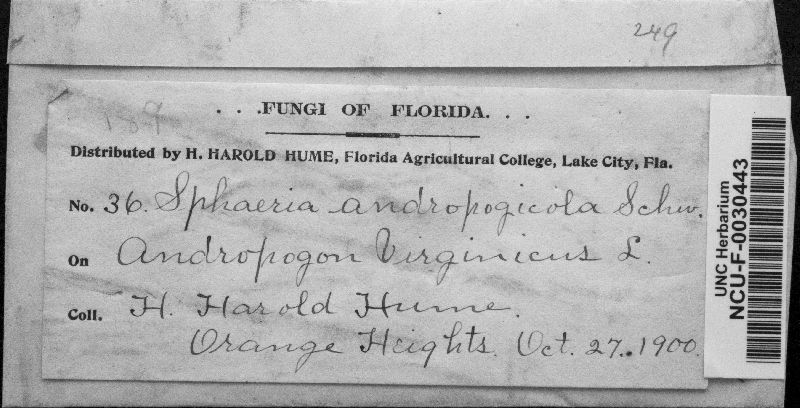 249
189
. . .FUNGI OF FLORIDA. . .
Distributed by H. HAROLD HUME, Florida Agricultural College, Lake City, Fla.
No. 36. Sphaeria andropogicola Schw.
On Andropogon Virginicus L.
Coll. H. Harold Hume.
Orange Heights. Oct. 27. 1900.
UNC Herbarium
NCU-F-0030443